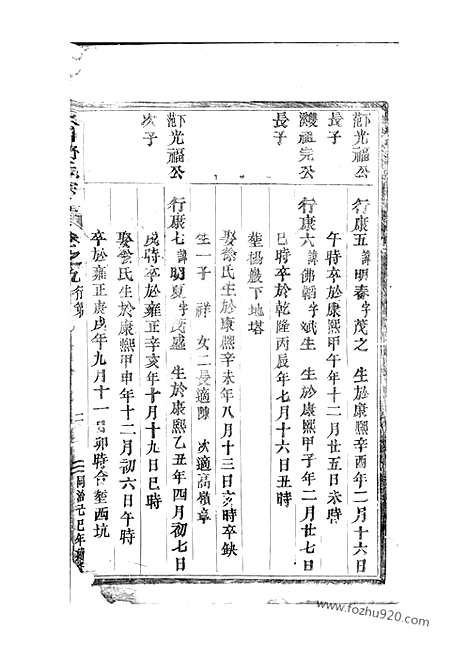 澥光福公
長子
行康五諱明春字茂之 生於康熙辛酉年二月十六日
午時卒於康熙甲午年十二月廿五日未時
祖宗公
長子
行康六諱佛韜字斌生 生於康熙甲子年二月廿七日
巳時卒於乾隆丙辰年七月十六日丑時
塟楊嚴下地塔
娶徐氏生於康熙辛未年八月十三日亥時卒缺
生一子 祥 女二長適陳 次適高嶺章
澥光福公
次子
行康七諱明夏字茂盛 生於康熙乙丑年四月初七日
戌時卒於雍正辛亥年十月十九日巳時
娶徐氏生於康熙甲申年十二月初六日午時
卒於雍正庚戌年九月十一日卯時合塟西坑
卷之九行第
二
同治己巳年
www.fozhu9.com